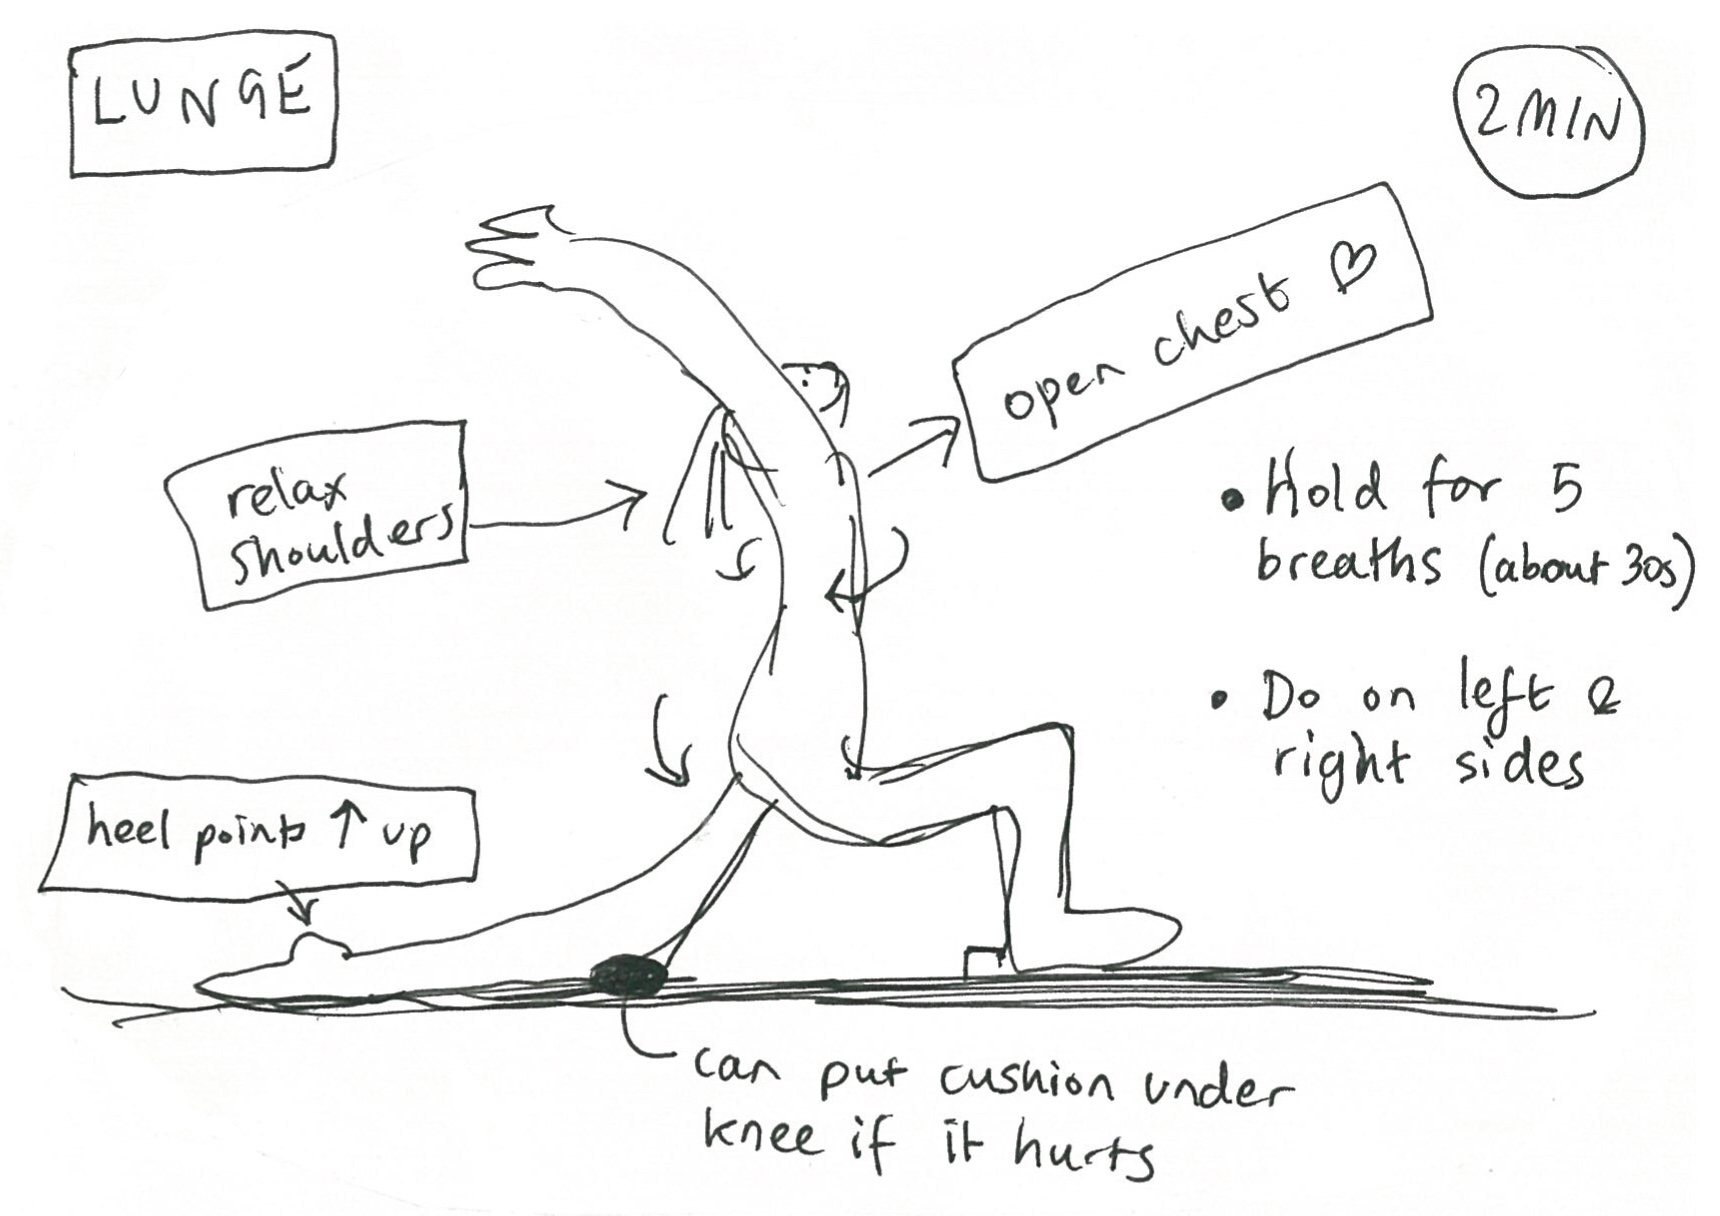 LUNGE
2 MIN
open chest ♡
relax
shoulders
• Hold for 5
breaths (about 30s)
• Do on left &
right sides
heel points ↑ up
can put cushion under
knee if it hurts